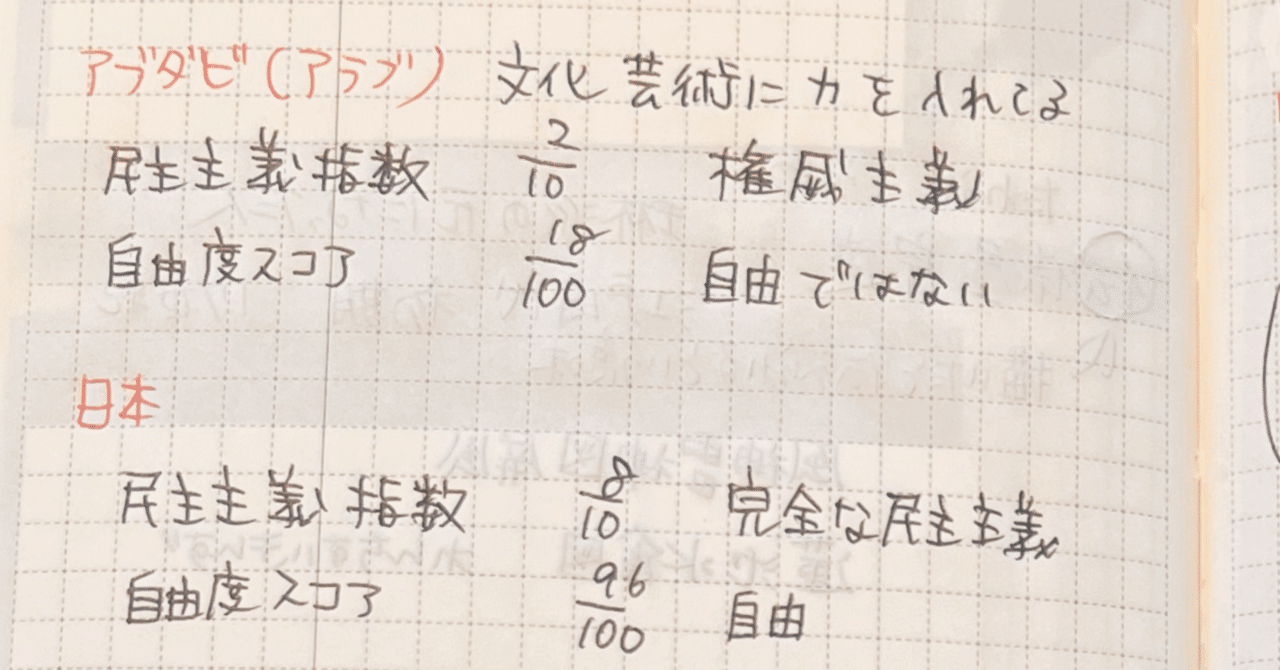 アブダビ(アラブ) 文化 芸術に力を入れてる
民主主義指数 2/10 権威主義
自由度スコア 18/100 自由ではない
日本
民主主義指数 8/10 完全な民主主義
自由度スコア 96/100 自由